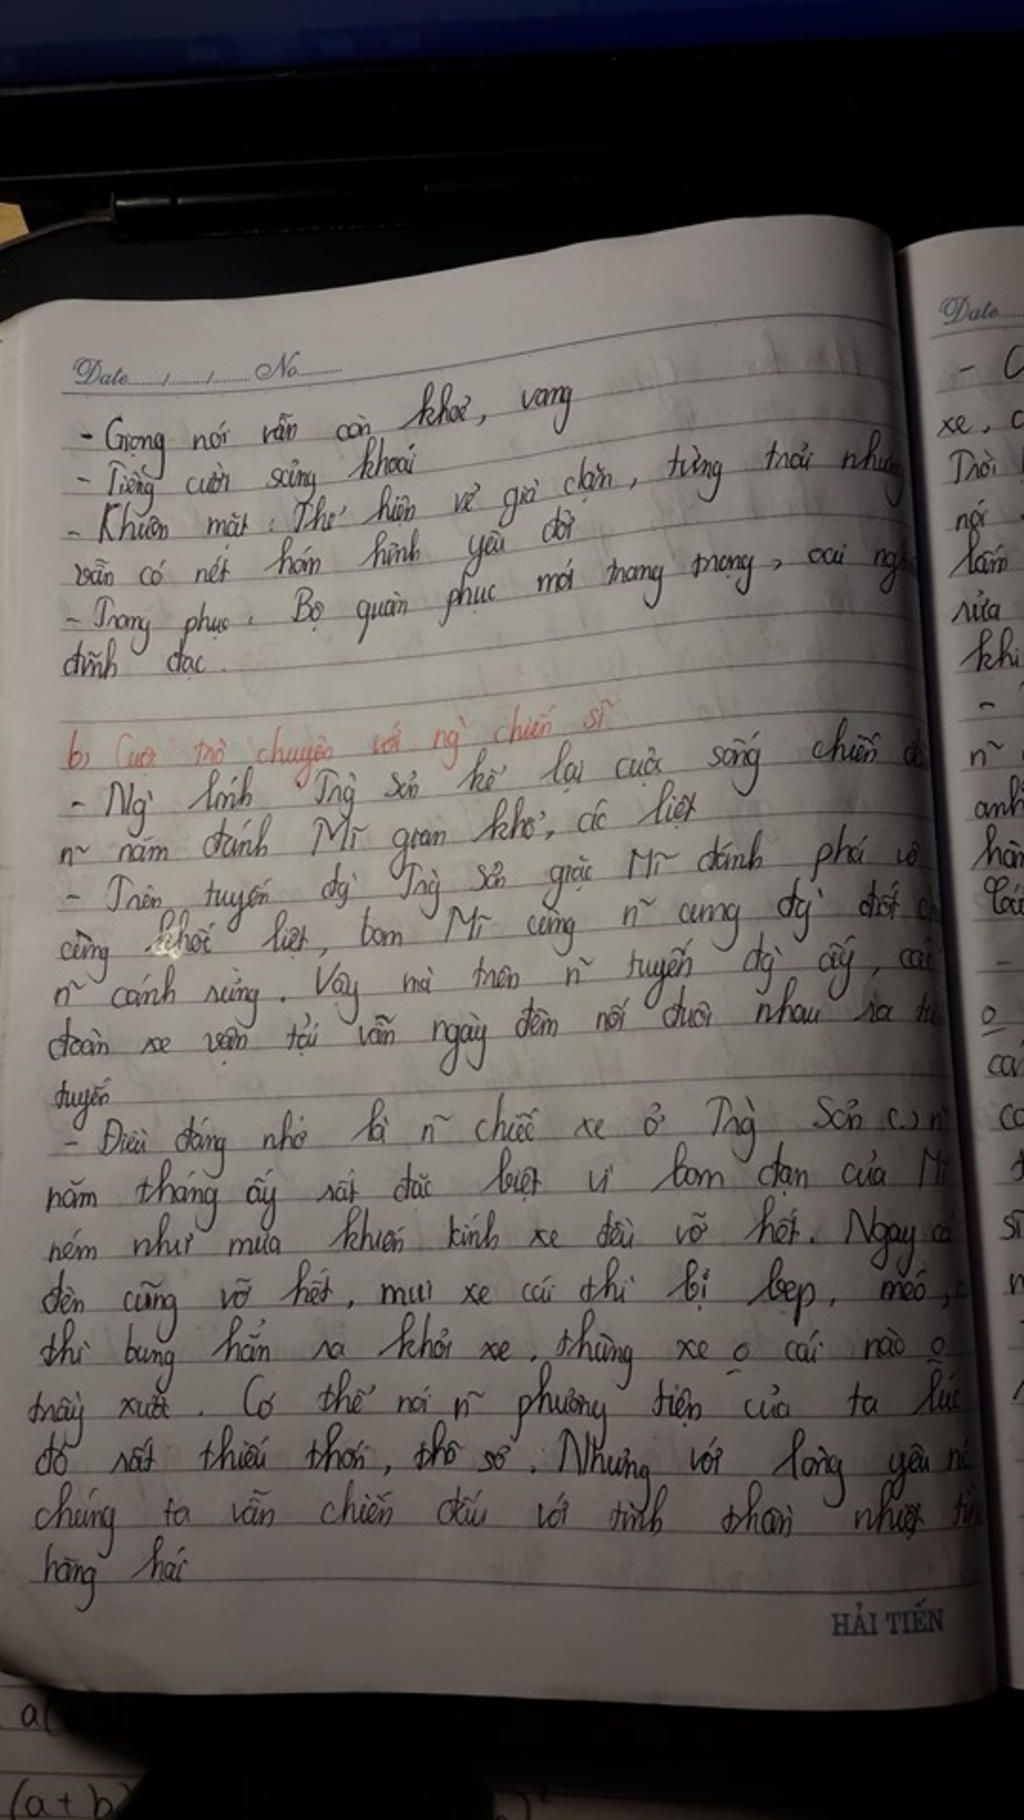 Date....../......./....... No..........
- Giọng nói vẫn còn khoẻ, vang
- Tiếng cười sảng khoái
- Khuôn mặt: Thể hiện vẻ già dặn, từng trải nhưng
vẫn có nét hóm hỉnh yêu đời
- Trang phục: Bộ quân phục mới trang trọng, oai
đĩnh đạc.
b) Cuộc trò chuyện với ng` chiến sĩ
- Ng` lính Trg` Sơn kể lại cuộc sống chiến
n~ năm đánh Mĩ gian khổ, ác liệt
- Trên tuyến đg` Trg` Sơn giặc Mĩ đánh phá vô
cùng khốc liệt, bom Mĩ cùng n~ cung đg` đốt
n~ cánh rừng. Vậy mà trên n~ tuyến đg` ấy,
đoàn xe vận tải vẫn ngày đêm nối đuôi nhau ra
tuyến
- Điều đáng nhớ là n~ chiếc xe ở Trg` Sơn
năm tháng ấy rất đặc biệt vì bom đạn của Mĩ
ném như mưa khiến kính xe đều vỡ hết. Ngay cả
đèn cũng vỡ hết, mui xe cái thì bị bẹp, méo,
thì bung hẳn ra khỏi xe, thùng xe o cái nào o
trầy xước. Có thể nói n~ phương tiện của ta lúc
đó rất thiếu thốn, thô sơ. Nhưng với lòng yêu
chúng ta vẫn chiến đấu với tinh thần nhiệt
hăng hái
HẢI TIẾN
Date.....
xe,
Trời
nói
lấm
rửa
khi
n~
anh
a(
(a + b)